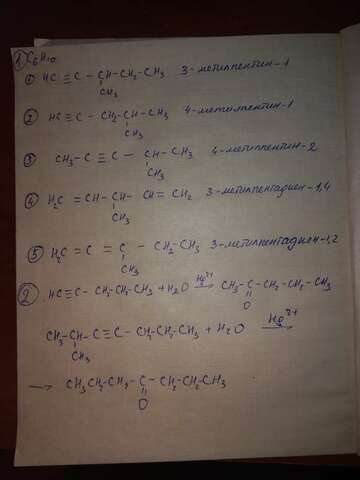 1) C6H10
1 HC ≡ C - CH-CH2-CH3 3-метилпентин-1
CH3
2 HC ≡ C - CH2-CH-CH3 4-метилпентин-1
CH3
3 CH3 - C ≡ C - CH-CH3 4-метилпентин-2
CH3
4 H2C = CH-CH-CH=CH2 3-метилпентадиен-1,4
CH3
5 H2C = C = C - CH2-CH3 3-метилпентадиен-1,2
CH3
2 HC≡C-CH2-CH2-CH3 + H2O Hg2+→ CH3-C-CH2-CH2-CH3
O
CH3-CH-C≡C-CH2-CH2-CH3 + H2O Hg2+→
CH3
→ CH3CH2-CH2-C-CH2-CH2-CH3
O